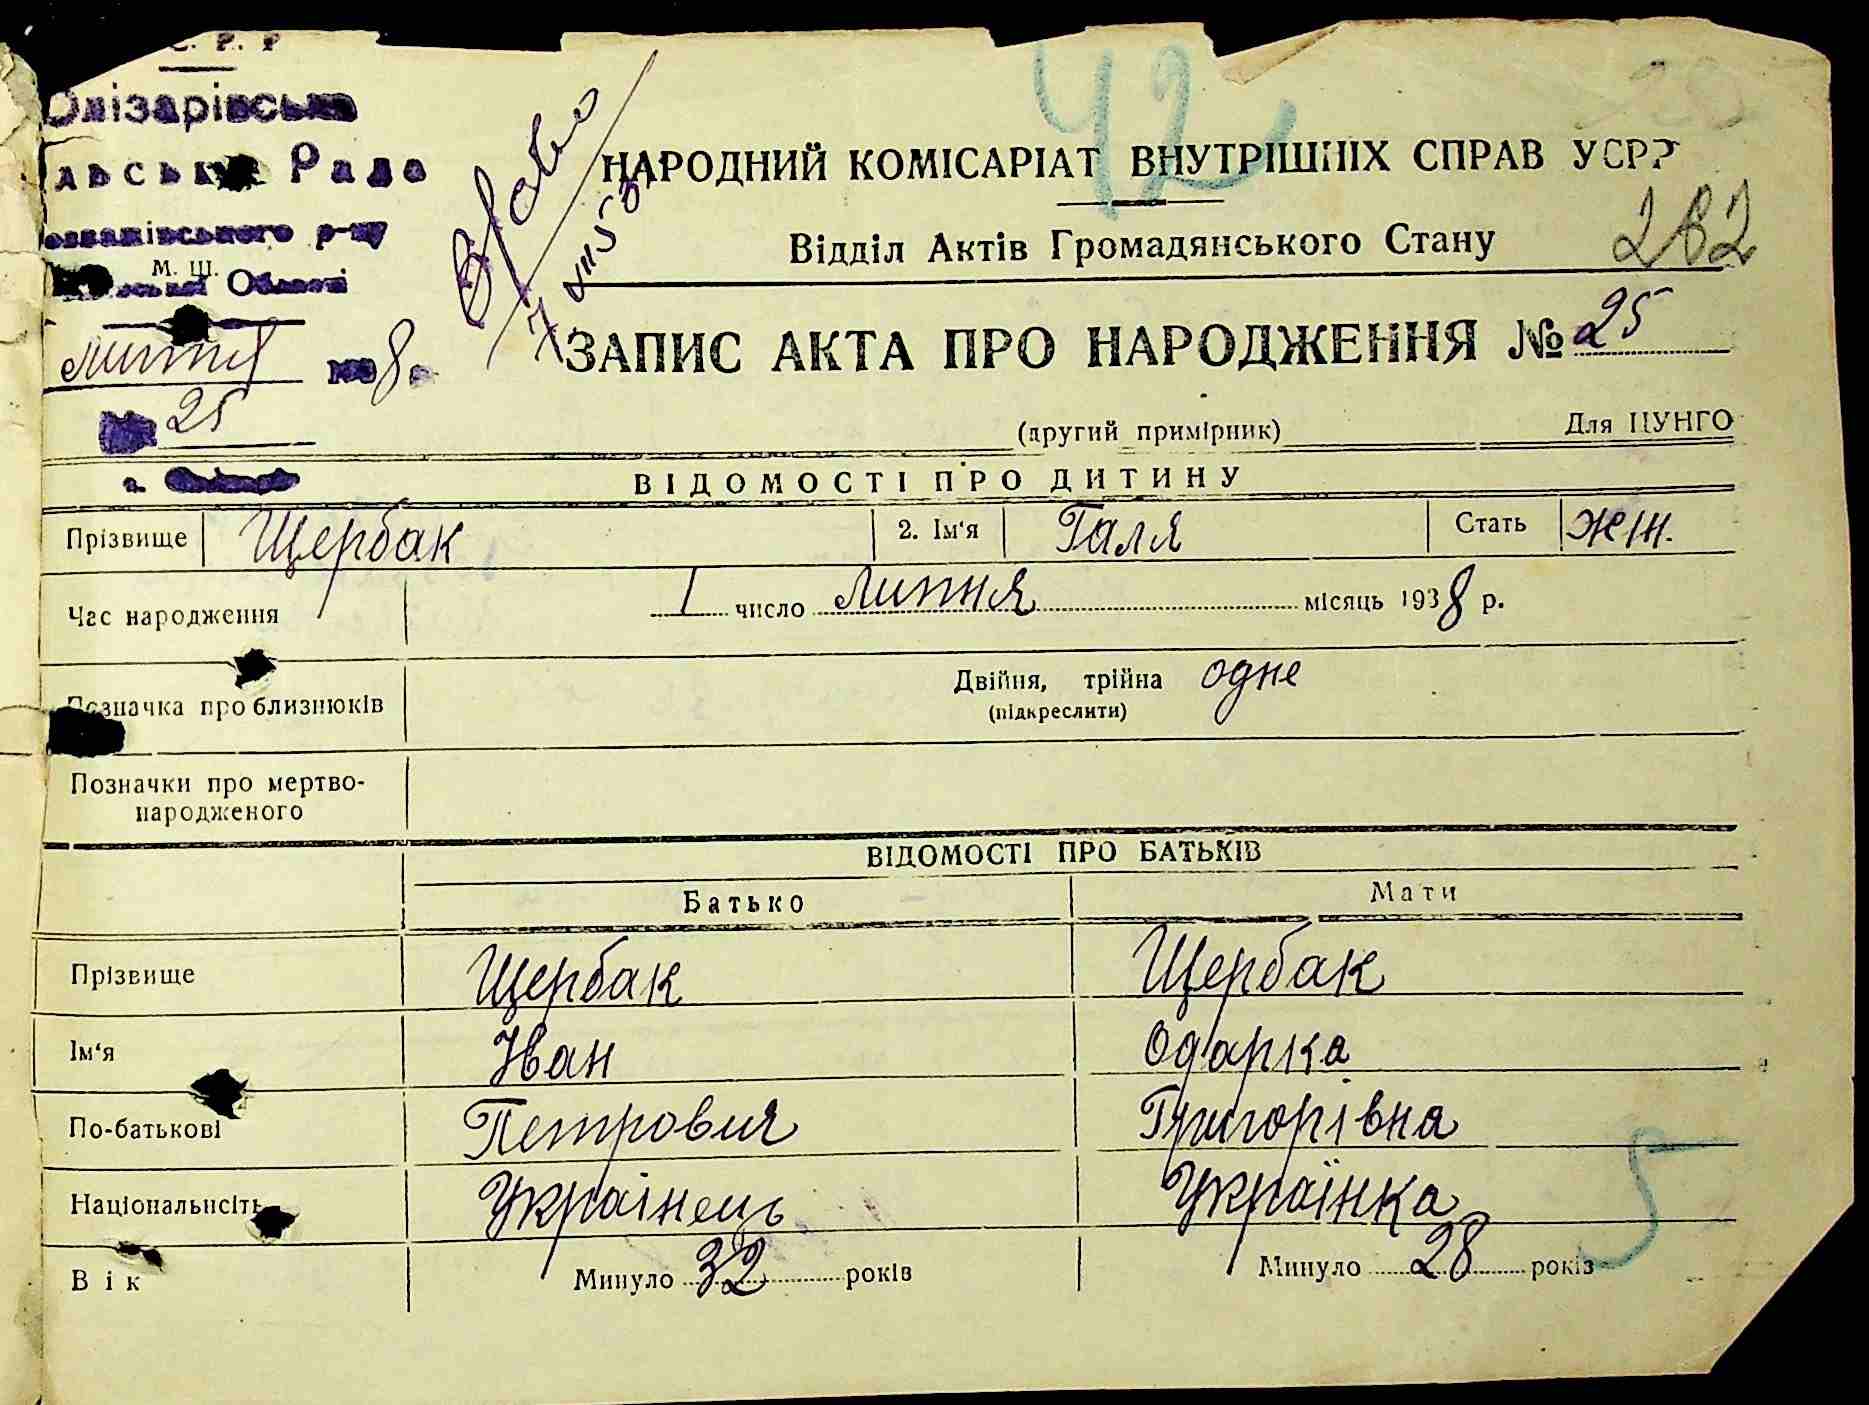 С. Р. Р
Олізарівська
льська Рада
М. Ш.
Області
липня 8
25
42
НАРОДНИЙ КОМІСАРІАТ ВНУТРІШНІХ СПРАВ УСРР
Відділ Актів Громадянського Стану
282
ЗАПИС АКТА ПРО НАРОДЖЕННЯ № 25
(другий примірник) Для ЦУНГО
ВІДОМОСТІ ПРО ДИТИНУ
Прізвище Щербак 2. Ім'я Галя Стать жін.
Час народження 1 число липня місяць 1938 р.
Двійня, трійна одне
Позначка про близнюків (підкреслити)
Позначки про мертво-
народженого
ВІДОМОСТІ ПРО БАТЬКІВ
Батько Мати
Прізвище Щербак Щербак
Ім'я Іван Одарка
По-батькові Петрович Григорівна
Національність Українець Українка
5
Вік Минуло 32 років Минуло 28 років